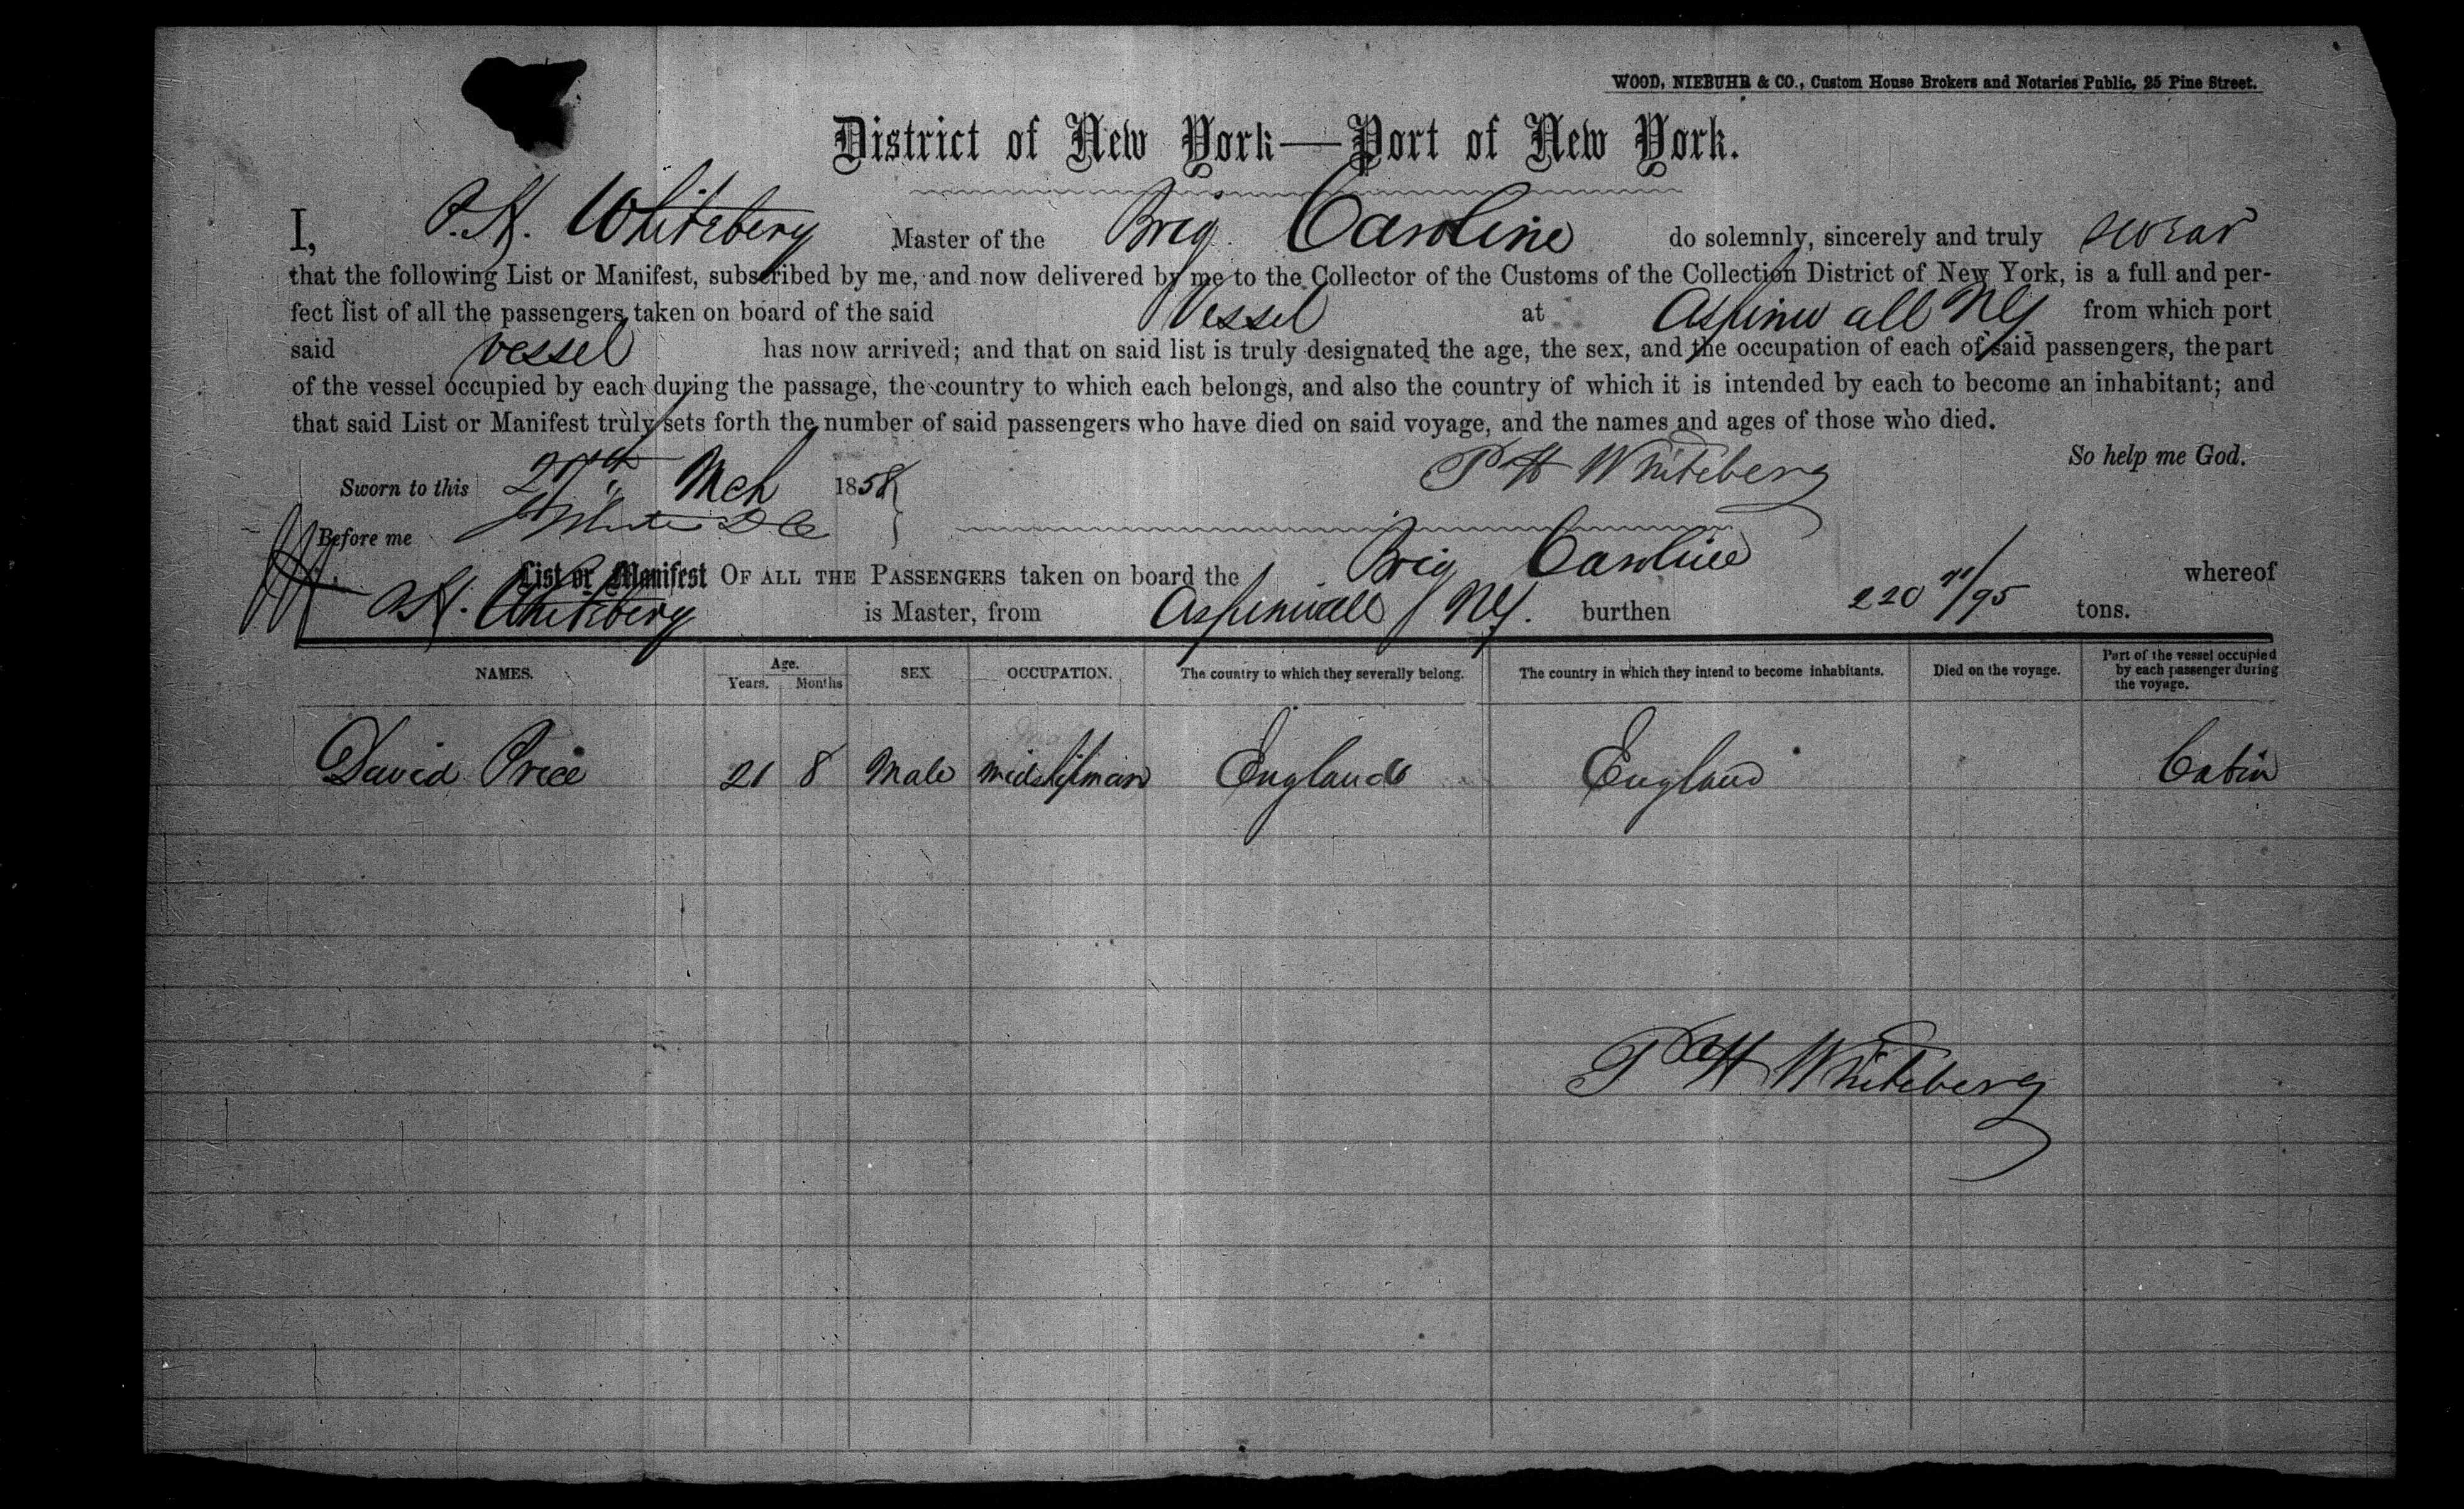 WOOD, NIEBUHR & CO., Custom House Brokers and Notaries Public, 25 Pine Street.
District of New York—Port of New York.
I, P. H. Whiteberg Master of the Brig Caroline do solemnly, sincerely and truly swear
that the following List or Manifest, subscribed by me, and now delivered by me to the Collector of the Customs of the Collection District of New York, is a full and per-
fect list of all the passengers taken on board of the said Vessel at Aspinwall NG from which port
said vessel has now arrived; and that on said list is truly designated the age, the sex, and the occupation of each of said passengers, the part
of the vessel occupied by each during the passage, the country to which each belongs, and also the country of which it is intended by each to become an inhabitant; and
that said List or Manifest truly sets forth the number of said passengers who have died on said voyage, and the names and ages of those who died.
So help me God.
Sworn to this 27th Mch 1858 P H Whiteberg
Before me
List or Manifest OF ALL THE PASSENGERS taken on board the Brig Caroline whereof
P. H. Whiteberg is Master, from Aspinwall NG. burthen 220 /95 tons.
NAMES. Age. Years. Months SEX OCCUPATION. The country to which they severally belong. The country in which they intend to become inhabitants. Died on the voyage. Part of the vessel occupied by each passenger during the voyage.
David Price 21 8 Male midshipman England England Cabin
P H Whiteberg